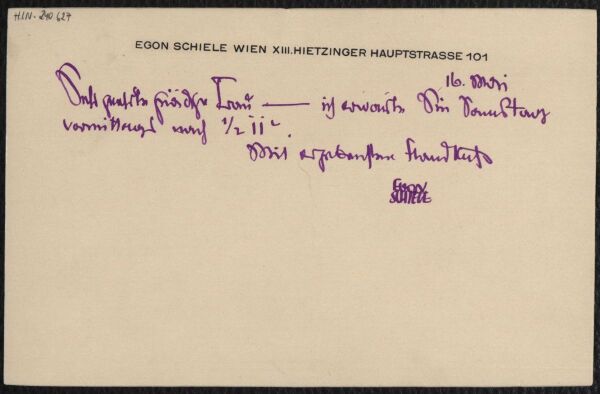 H.I.N.-240.627
EGON SCHIELE WIEN XIII. HIETZINGER HAUPTSTRASSE 101
16. Mai
Sehr geehrte gnädige Frau — ich erwarte Sie Samstag
vormittags nach 1/2 11h.
Mit ergebensten Handkuß
EGON
SCHIELE